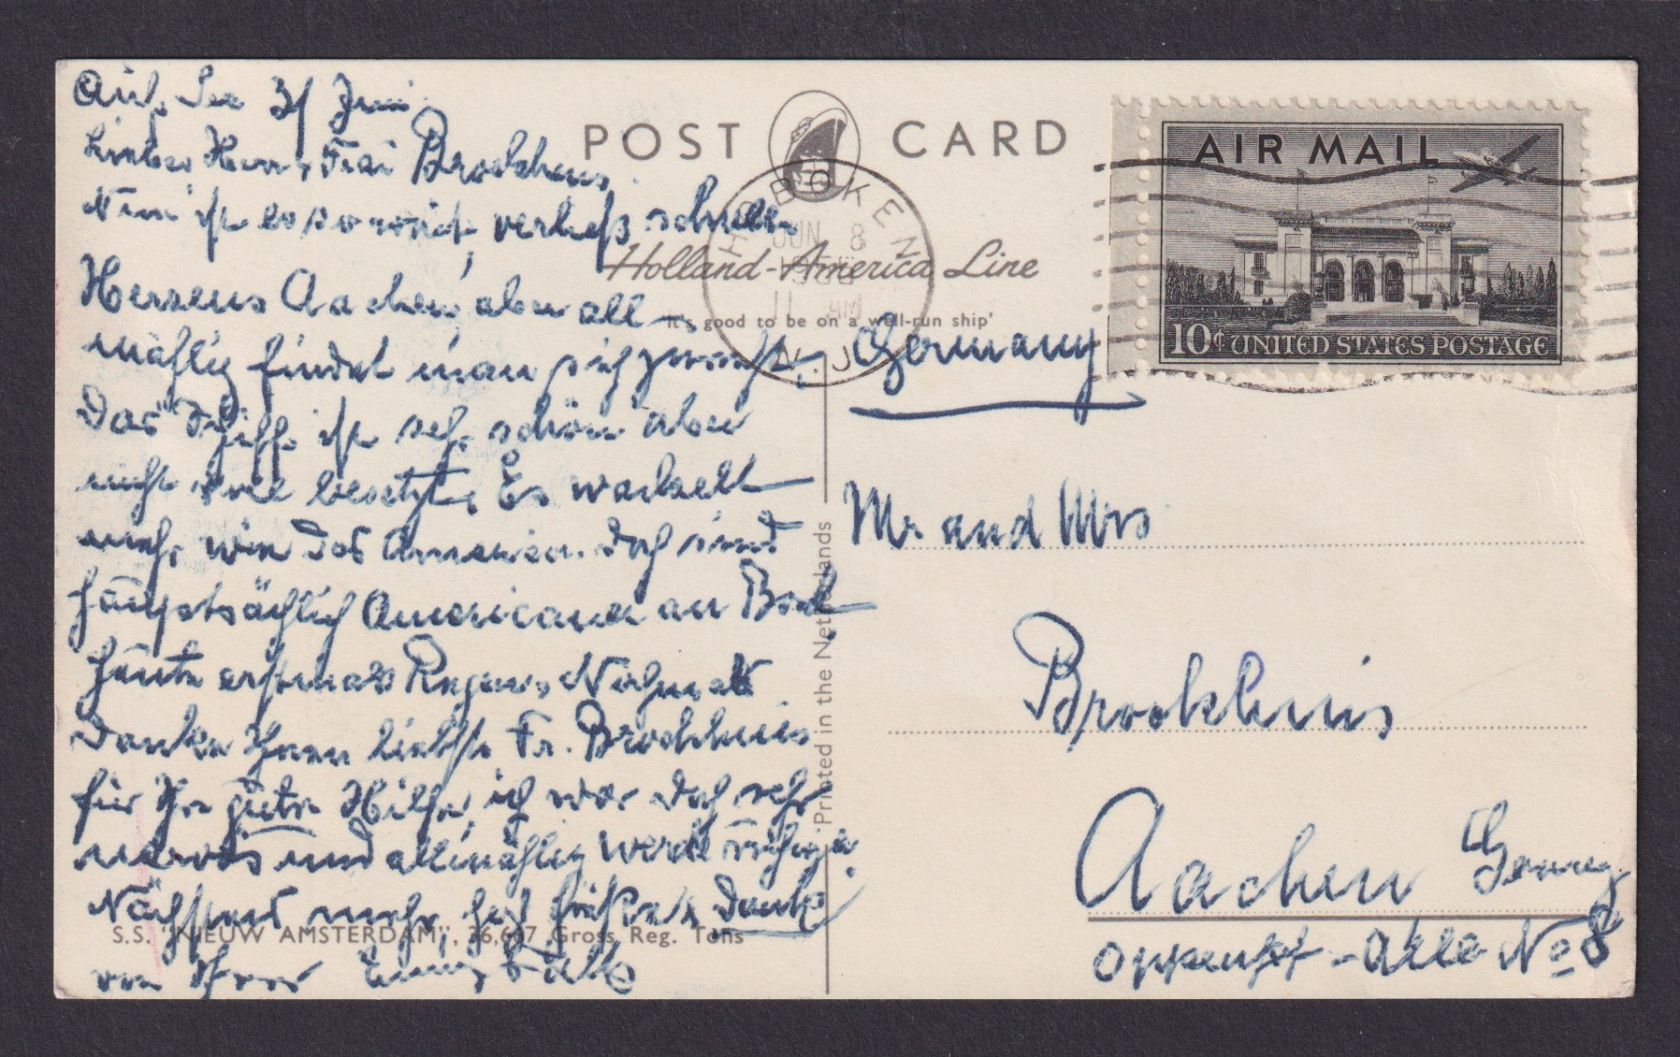 Auf See 3/ Juni
Lieber Herr u Frau Brockhuis
Nun ist es so weit, verließ schwer
Herzens Aachen, aber all-
mählig findet man sich zurecht.
Das Schiff ist sehr schön aber
nicht voll besetzt. Es wackelt
mehr wie das America. Doch sind
hauptsächlich Americaner an Bord
heute erstmals Regen. Nochmals
Danke Ihnen liebste Fr. Brockhuis
für Ihre gute Hilfe, ich war doch sehr
nervös und allmählig werde ruhiger.
Nächstens mehr, herz Grüße u Danke
von Ihrer
POST CARD
Holland-America Line
'It's good to be on a well-run ship'
HOBOKEN
JUN 8
11 AM
N.J.
AIR MAIL
10¢ UNITED STATES POSTAGE
Germany
Mr. and Mrs
Brockhuis
Aachen Germy
Oppenhf-Allee No 8
Printed in the Netherlands
S.S. "NIEUW AMSTERDAM", 36,667 Gross Reg. Tons